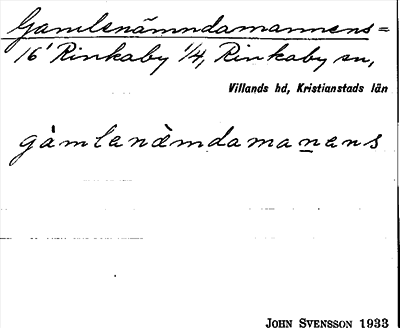 Gamlenämndamannens =
16' Rinkaby 1/4, Rinkaby sn,
Villands hd, Kristianstads län
gàmlenä̀mdamanens
JOHN SVENSSON 1933